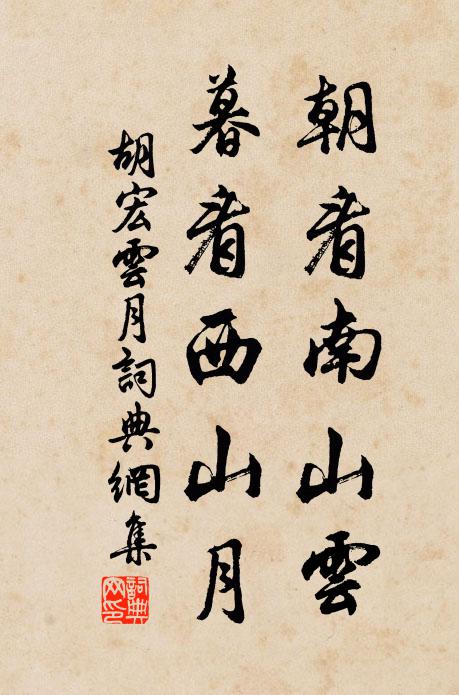 朝看南山雲
暮看西山月
胡宏雲月詞典網集
詞典網印